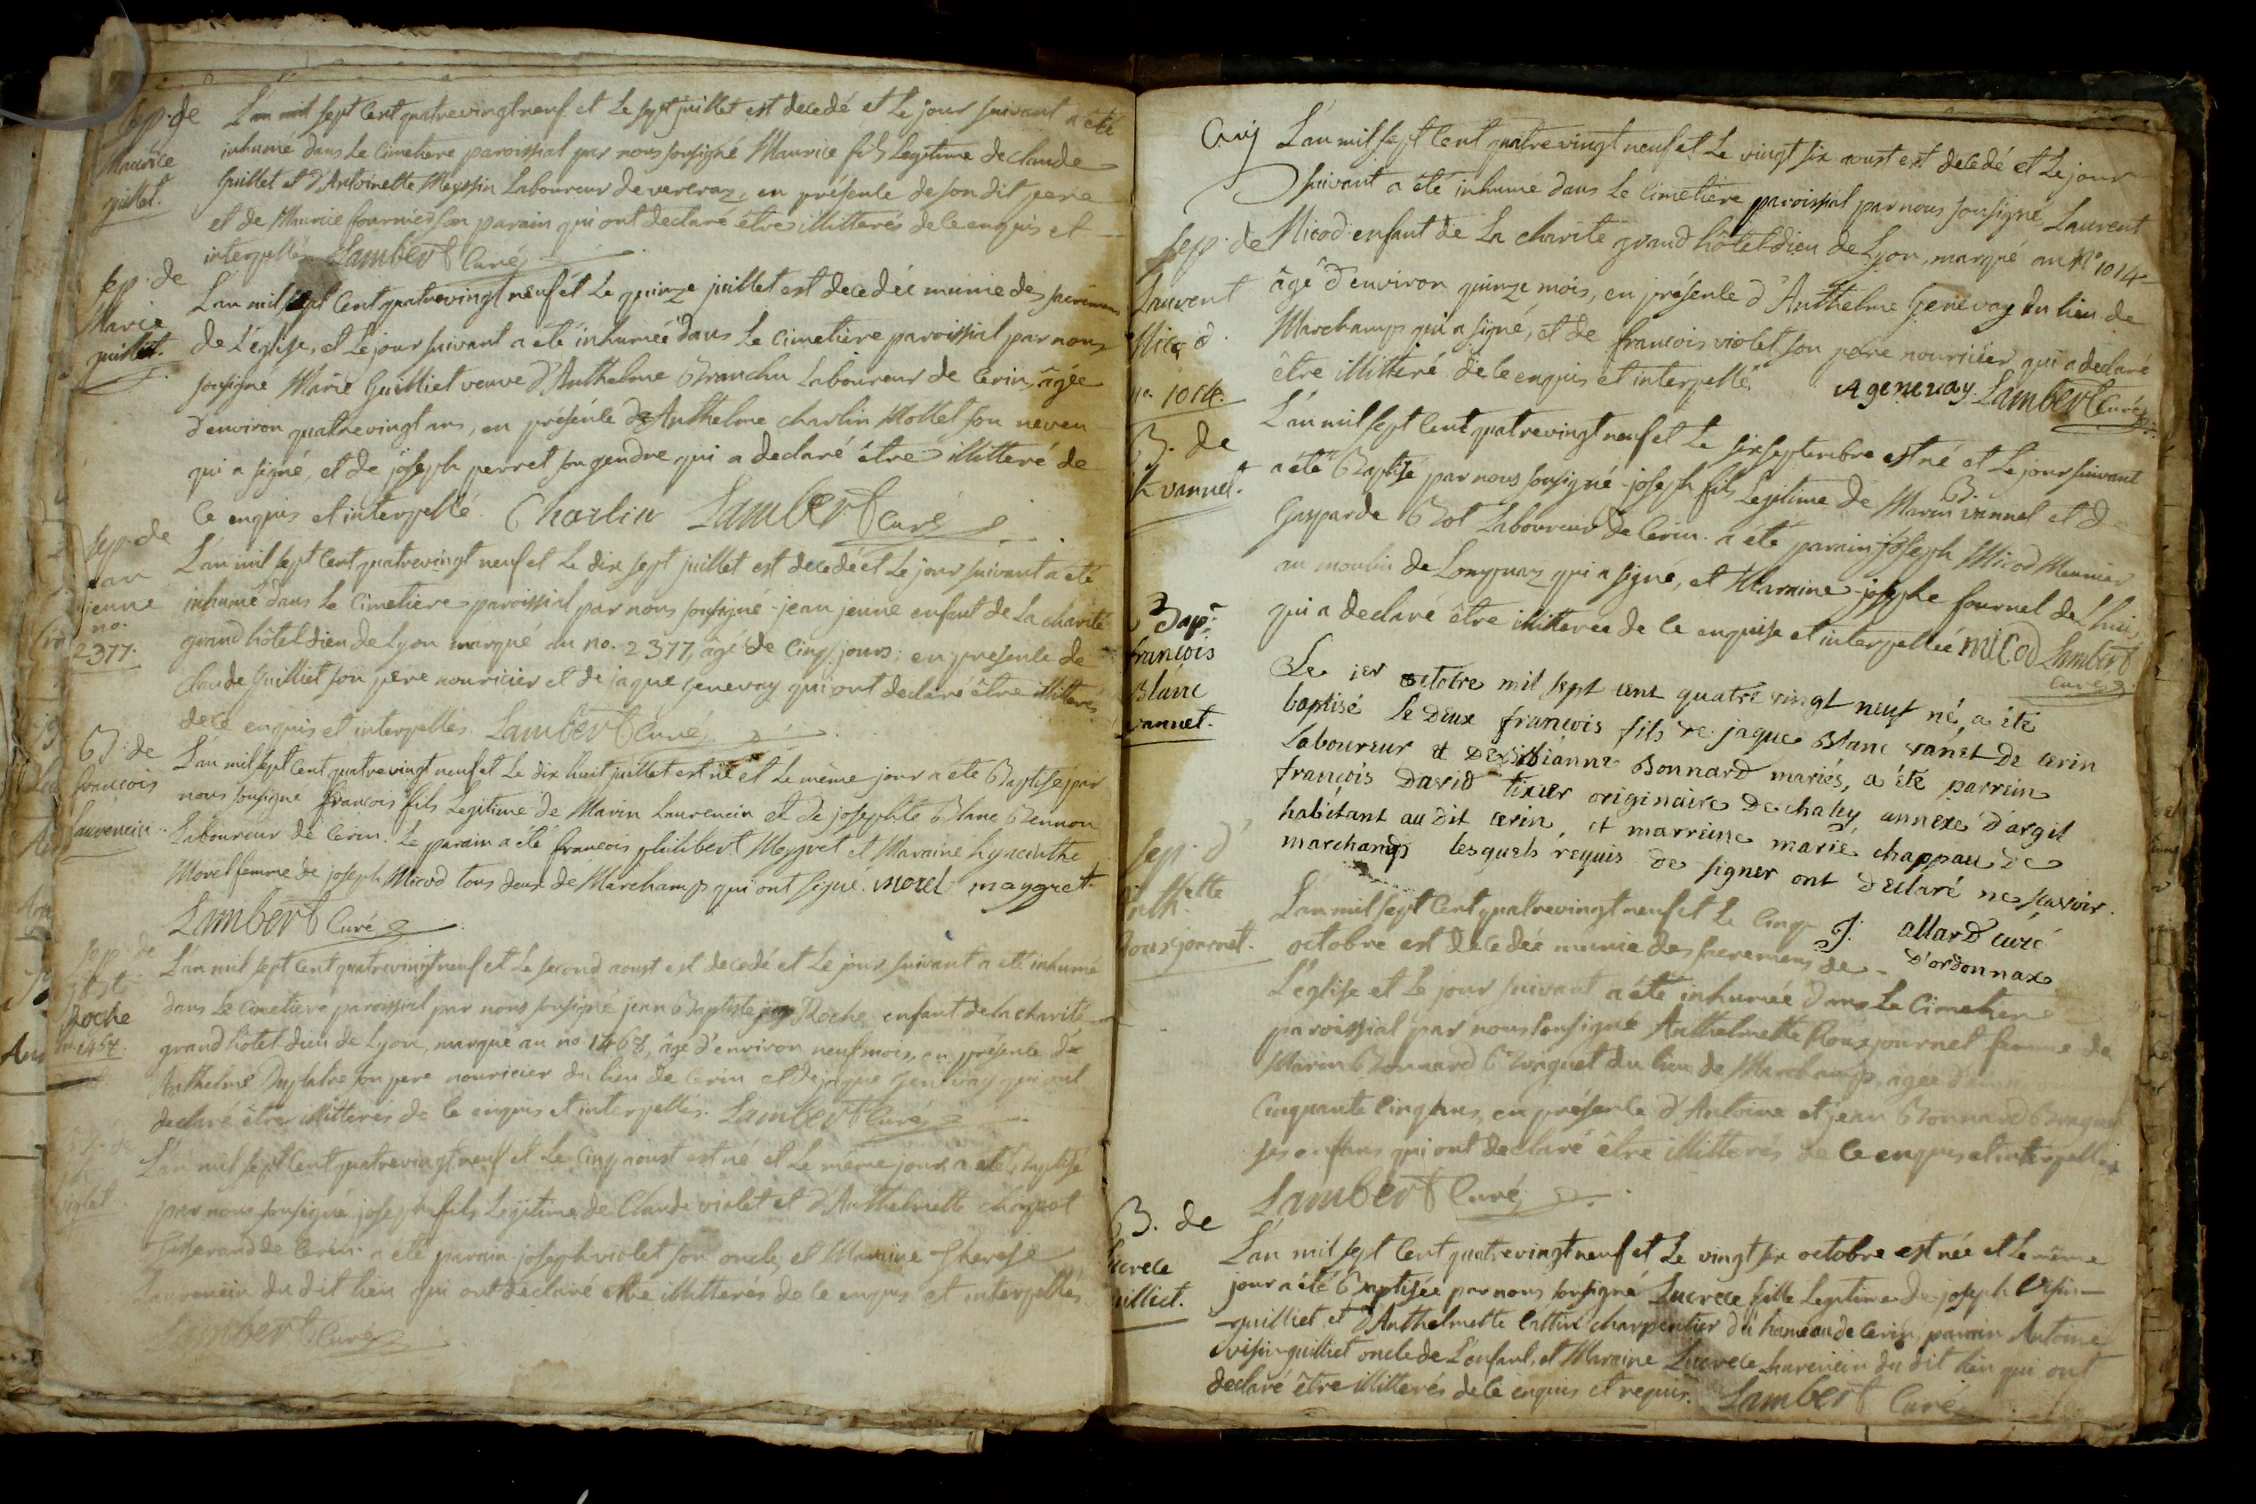 Sep. de
Maurice
guillet.
L'an mil sept Cent quatrevingt neuf et Le sept juillet est decedé et Le jour suivant a été
inhumé dans Le Cimetiere paroissial par nous soussigné Maurice fils Legitime de Claude
Guillet et d'Antoinette Meyssin Laboureur de vercraz, en présence de son dit pere
et de Maurice fournier son parain qui ont declaré être illitterés de ce enquis et
interpellés Lambert Curé
Sep. de
Marie
guilliet.
L'an mil sept Cent quatrevingt neuf et Le quinze juillet est decedée munie des sacremens
de L'église, et Le jour suivant a été inhumée dans Le Cimetiere paroissial par nous
soussigné Marie Guilliet veuve d'Anthelme Branchu Laboureur de Cerin, âgée
d'environ quatrevingt ans, en présence d'Anthelme charlin Mottet son neveu
qui a signé, et de joseph perret son gendre qui a declaré être illitteré de
Ce enquis et interpellé. Charlin Lambert Curé
Sep. de
jean
jenne
no.
2377.
L'an mil sept Cent quatrevingt neuf et Le dix sept juillet est decedé et Le jour suivant a été
inhumé dans Le Cimetiere paroissial par nous soussigné jean jenne enfant de La charité
grand hôtel dieu de Lyon marqué au no. 2377, âgé de Cinq jours, en présence de
Claude Guilliet son pere nouricier et de jaque genevay qui ont declaré être illitterés
de Ce enquis et interpellés. Lambert Curé
B. de
francois
Laurencin.
L'an mil sept Cent quatrevingt neuf et Le dix huit juillet est né et Le même jour a été Baptisé par
nous soussigné francois fils Legitime de Marin Laurencin et de josephte Blanc Bennon
Laboureur de Cerin. Le parain a été francois philibert Meygret et Maraine hyacinthe
Morel femme de joseph Micod tous deux de Marchamp qui ont signé. morel maygret
Lambert Curé
Sep. de
Roche
no. 1467.
L'an mil sept Cent quatrevingt neuf et Le second aoust est decedé et Le jour suivant a été inhumé
dans Le Cimetiere paroissial par nous soussigné jean Baptiste Roche enfant de la charité
grand hôtel dieu de Lyon, marqué au no. 1468, âgé d'environ neuf mois, en présence d'
Anthelme Duplatre son pere nouricier du lieu de Cerin et de jaque genevay qui ont
declaré être illitterés de Ce enquis et interpellés. Lambert Curé
B. de
violet.
L'an mil sept Cent quatrevingt neuf et Le Cinq aoust est né et Le même jour a été Baptisé
par nous soussigné joseph fils Legitime de Claude violet et d'Anthelmette
Tisserand de Cerin. a été parain joseph violet son oncle, et Maraine Therese
Laurencin du dit lieu qui ont declaré être illitterés de Ce enquis et interpellés
Lambert Curé
L'an mil sept Cent quatrevingt neuf et Le vingt six aoust est decedé et Le jour
suivant a été inhumé dans Le Cimetiere paroissial par nous soussigné Laurent
Sep. de
Laurent
Micod.
no. 1014.
Micod enfant de La charité grand hôtel dieu de Lyon, marqué au No. 1014
âgé d'environ quinze mois, en présence d'Anthelme Genevay du lieu de
Marchamp qui a signé, et de francois violet son pere nouricier qui a declaré
être illitteré de Ce enquis et interpellé. A genevay. Lambert Curé
B. de
vannel.
L'an mil sept Cent quatrevingt neuf et Le six septembre est né et Le jour suivant
a été Baptisé par nous soussigné joseph fils Legitime de Marin B. vannel et d
Gasparde Bot Laboureur de Cerin. a été parain joseph Micod Meunier
au moulin de Longpraz qui a signé, et Maraine josephe fournel de
qui a declaré être illitterée de Ce enquise et interpellée micod Lambert
Curé
Bap.
francois
Blanc
vannet.
Le 1er octobre mil sept cent quatre vingt neuf né, a été
baptisé Le deux françois fils de jaque Blanc vanet de cerin
Laboureur et de Bibianne Bonnard mariés, a été parrein
françois David tixier originaire de chaley annexe d'argit
habitant au dit cerin, et marreine marie chappau de
marchamp lesquels requis de signer ont declaré ne scavoir.
J: allard curé
d'ordonnax
Sep. d'
Anth.ette
Rousjournet.
L'an mil sept Cent quatrevingt neuf et Le Cinq
octobre est decedée munie des sacremens de
L'église et Le jour suivant a été inhumée dans Le Cimetiere
paroissial par nous soussigné Anthelmette Rousjournet femme de
Marin Bonnard Broquet du lieu de Marchamp, âgée d'environ
Cinquante Cinq ans, en présence d'Antoine et jean Bonnard Broquet
ses enfans qui ont declaré être illitterés de Ce enquis et interpellés
Lambert Curé
B. de
Lucrece
guilliet.
L'an mil sept Cent quatrevingt neuf et Le vingt six octobre est née et Le même
jour a été Baptisée par nous soussigné Lucrece fille Legitime de joseph Visin
guilliet, et d'Anthelmette Cattin charpentier du hameau de Cerin, parain Antoine
visin-guilliet oncle de L'enfant, et Maraine Lucrece Laurencin du dit lieu qui ont
declaré être illitterés de Ce enquis et requis. Lambert Curé